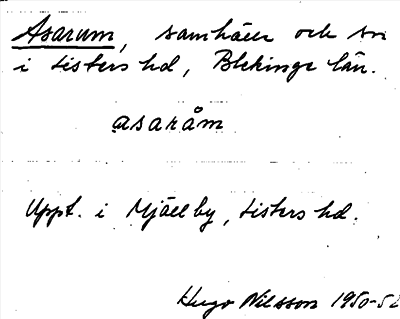 Asarum, samhälle och sn
i Listers hd, Blekinge län.
asaråm
Uppt. i Mjällby, Listers hd.
Hugo Nilsson 1950-52